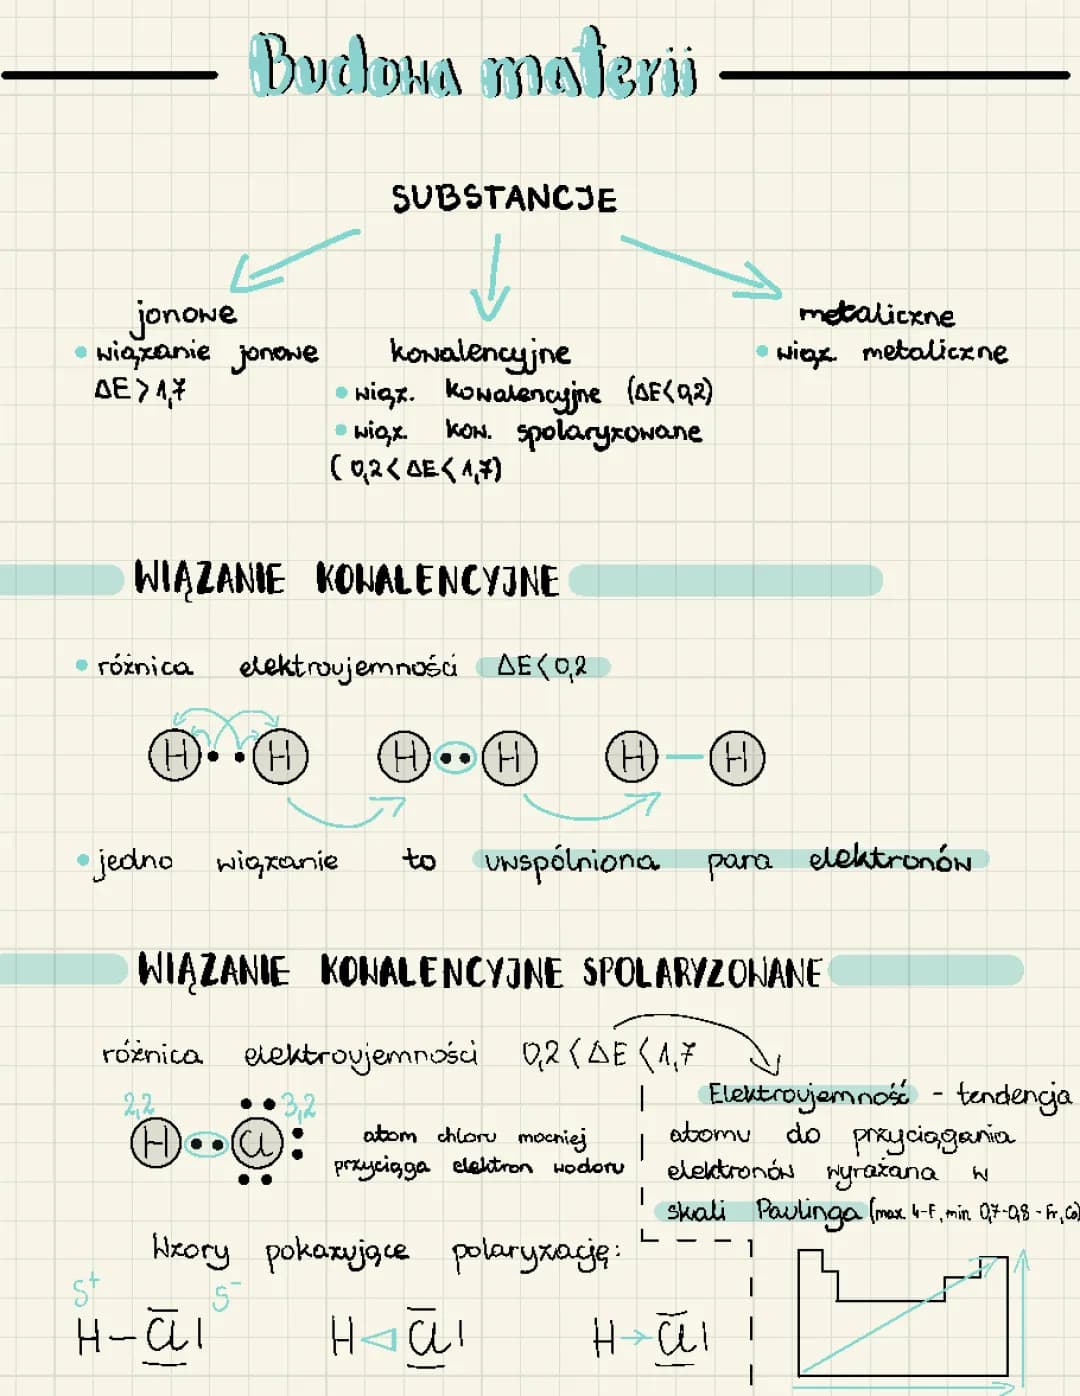 Budowa materii
SUBSTANCJE
jonowe
• wiązanie jonowe
ΔE > 1,7
kowalencyjne
• wiąz. kowalencyjne (ΔE<0,2)
• wiąz. kow. spolaryzowane
(0,2<ΔE<1,7)
metaliczne
• wiąz. metaliczne
WIĄZANIE KOWALENCYJNE
• różnica elektroujemności ΔE<0,2
H • • H H •• H H — H
• jedno wiązanie to uwspólniona para elektronów
WIĄZANIE KOWALENCYJNE SPOLARYZOWANE
różnica elektroujemności 0,2<ΔE<1,7
2,2 3,2
H •• Cl
atom chloru mocniej
przyciąga elektron wodoru
Elektroujemność - tendencja
atomu do przyciągania
elektronów wyrażana w
skali Paulinga (max. 4-F, min 0,7-0,8 - Fr, Cs)
Wzory pokazujące polaryzację:
δ+ δ-
H–Cl| H◁Cl| H→Cl|